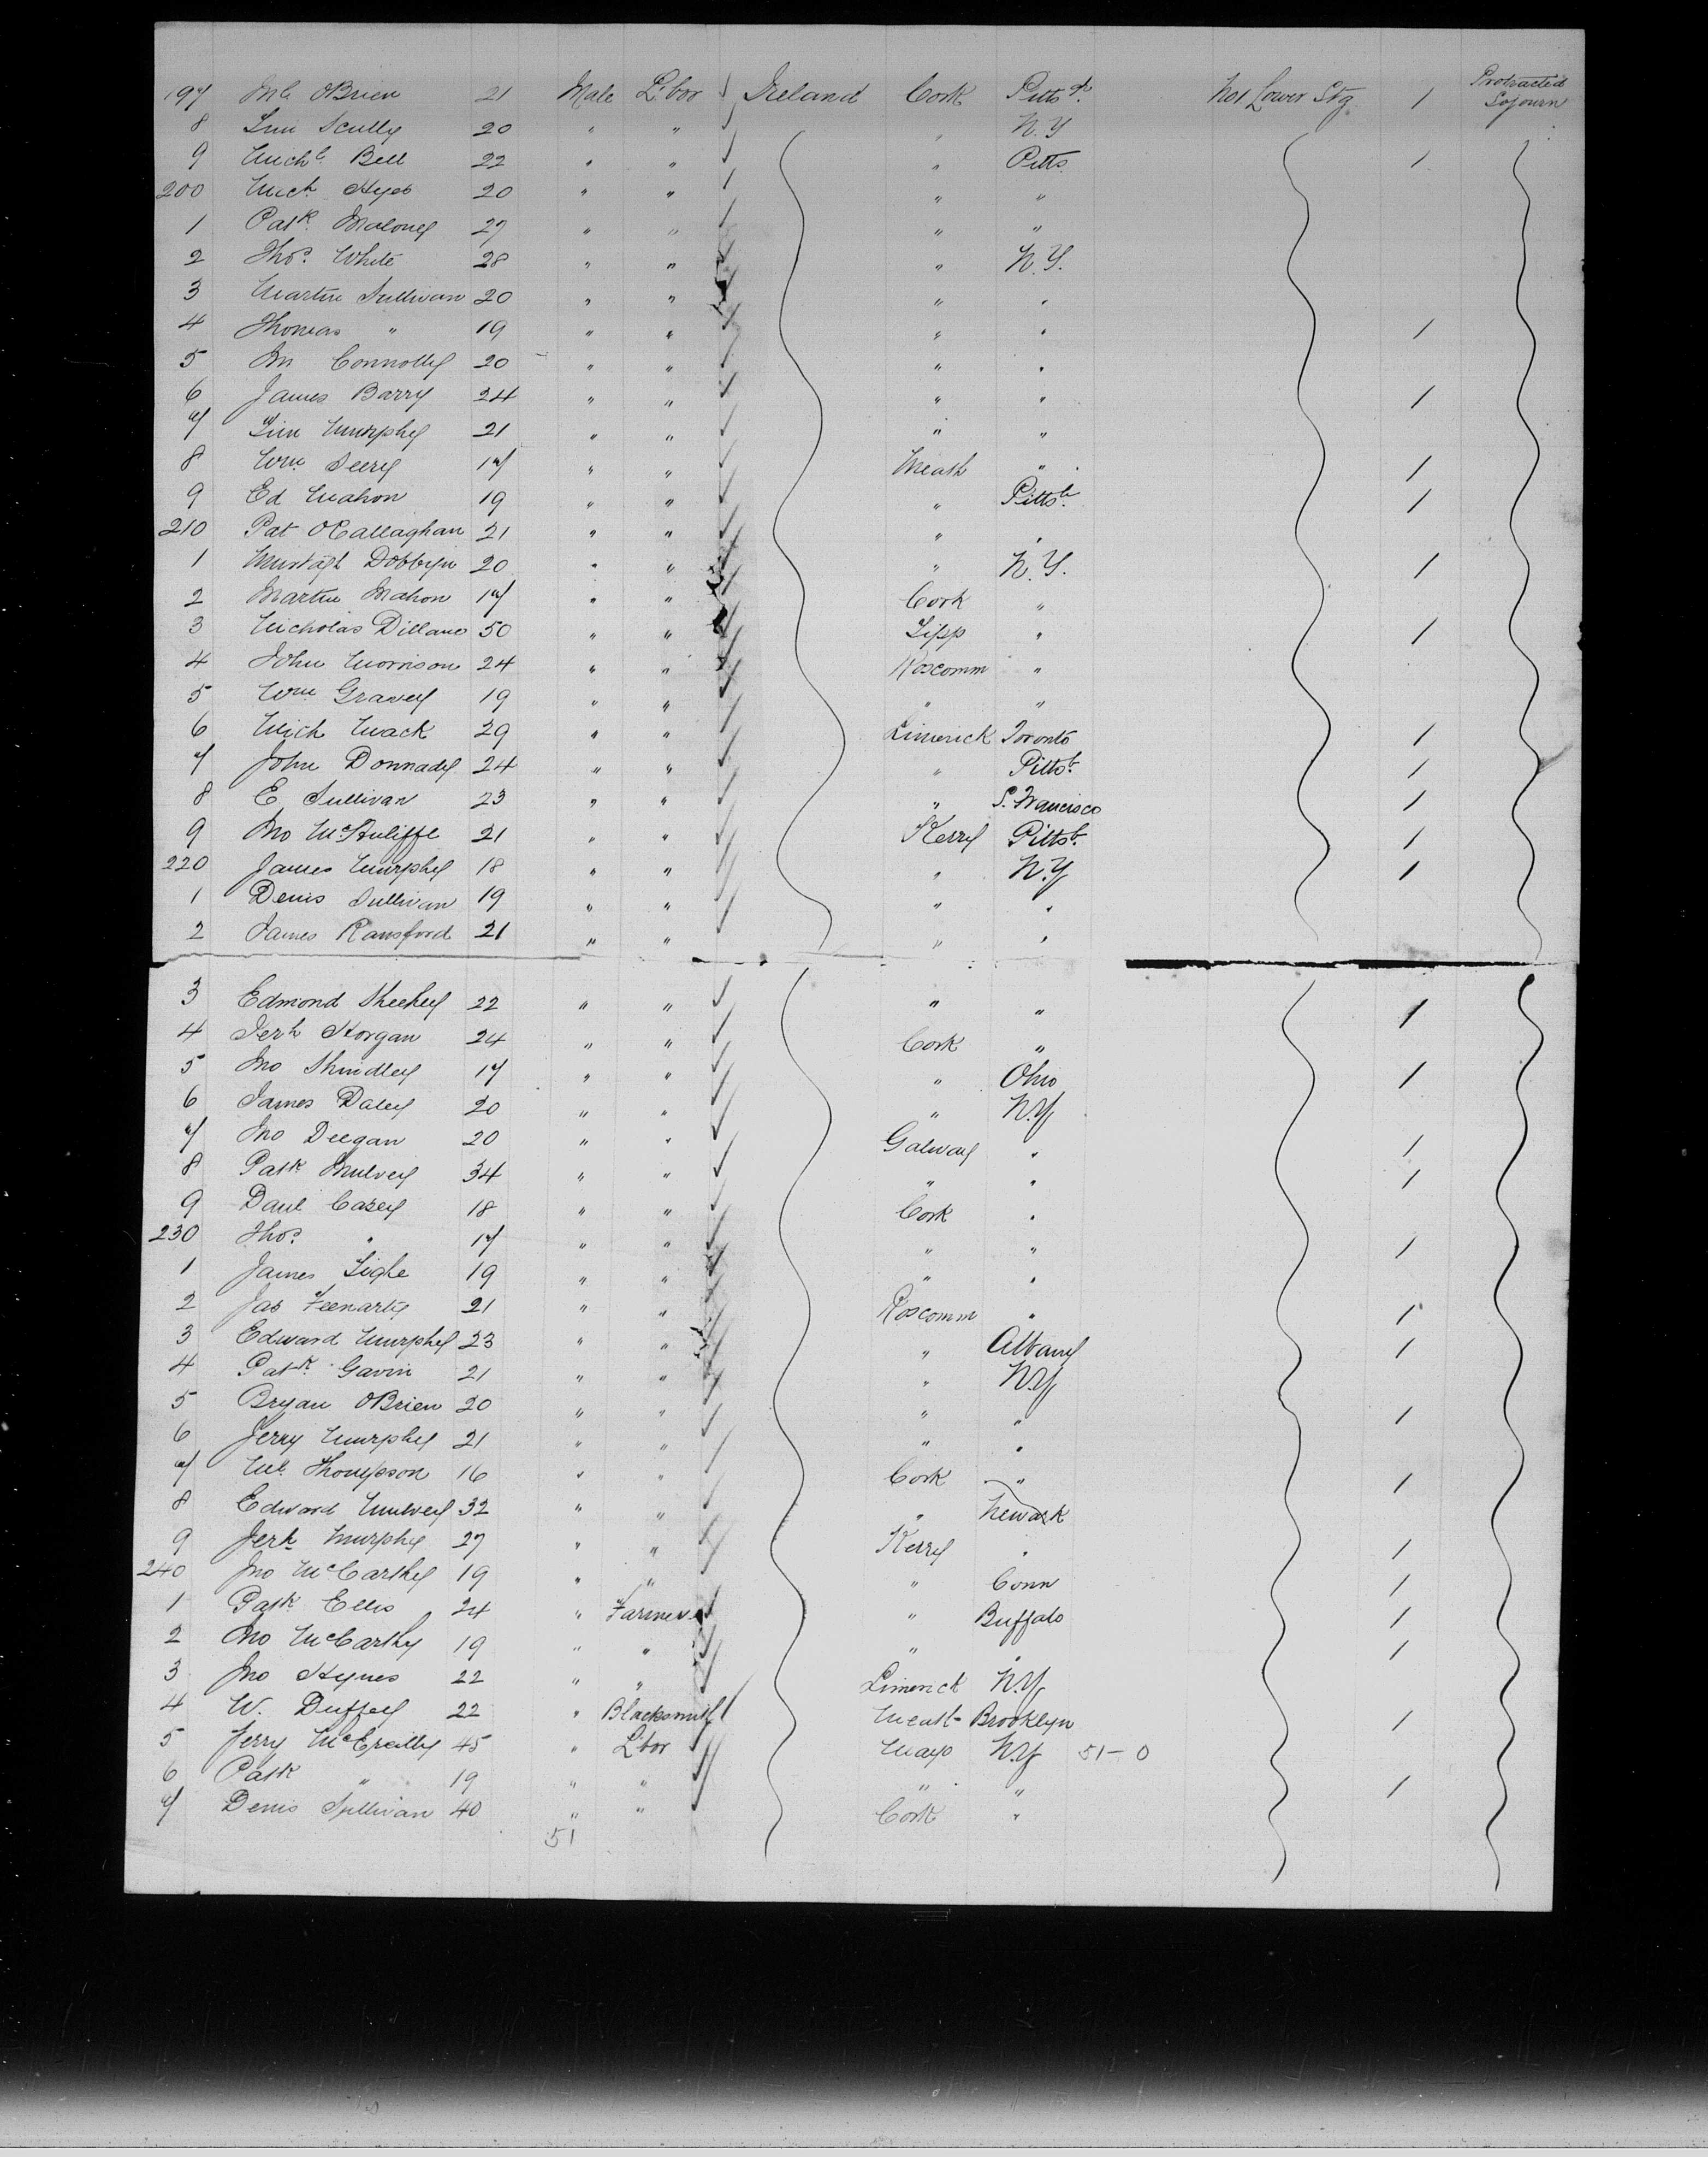 197 Ml. OBrien 21 Male L'bor Ireland Cork Pitts No 1 Lower Stg. 1 Protracted Sojourn
8 Tim Scully 20 " " " N.Y
9 Michl. Bell 22 " " " Pitts. 1
200 Mich. Hyes 20 " " " "
1 Patk. Maloney 27 " " " "
2 Thos. White 28 " " " N.Y.
3 Martin Sullivan 20 " " " "
4 Thomas " 19 " " " " 1
5 Connolly 20 " " " "
6 James Barry 24 " " " " 1
7 Tim Murphy 21 " " " "
8 Wm Deery 17 " " Meath " 1
9 Ed Mahon 19 " " " Pittsb. 1
210 Pat OCallaghan 21 " " " "
1 Murtagh Dobbyn 20 " " " N.Y. 1
2 Martin Mahon 17 " " Cork "
3 Nicholas Dillane 50 " " Tipp " 1
4 John Morrison 24 " " Roscomm "
5 Wm Gravey 19 " " " "
6 Mich Mack 29 " " Limerick Toronto 1
7 John Donnady 24 " " " Pittsb. 1
8 E Sullivan 23 " " " S. Francisco 1
9 Jno McAuliffe 21 " " Kerry Pittsb. 1
220 James Murphy 18 " " " N.Y 1
1 Denis Sullivan 19 " " " "
2 James Ransford 21 " " " "
3 Edmond Sheehy 22 " " " " 1
4 Jerh Horgan 24 " " Cork "
5 Jno Shindley 17 " " " Ohio 1
6 James Daley 20 " " " N.Y
7 Jno Deegan 20 " " Galway " 1
8 Patk Mulvey 34 " " " " 1
9 Danl Casey 18 " " Cork "
230 Thos. " 17 " " " " 1
1 James Tighe 19 " " " "
2 Jas Feenarty 21 " " Roscomm " 1
3 Edward Murphy 23 " " " Albany 1
4 Patk. Gavin 21 " " " N.Y
5 Bryan OBrien 20 " " " " 1
6 Jerry Murphy 21 " " " "
7 Ml. Thompson 16 " " Cork " 1
8 Edward Mulvey 32 " " " Newark
9 Jerh Murphy 27 " " Kerry " 1
240 Jno McCarthy 19 " " " Conn 1
1 Patk Ellis 24 " Farmer " Buffalo 1
2 Jno McCarthy 19 " " " " 1
3 Jno Hynes 22 " " Limerick N.Y
4 W. Duffey 22 " Blacksmith Meath Brooklyn 1
5 Jerry 45 " L'bor Mayo N.Y 51-0
6 Patk " 19 " " " " 1
7 Denis Sullivan 40 " " Cork "
51